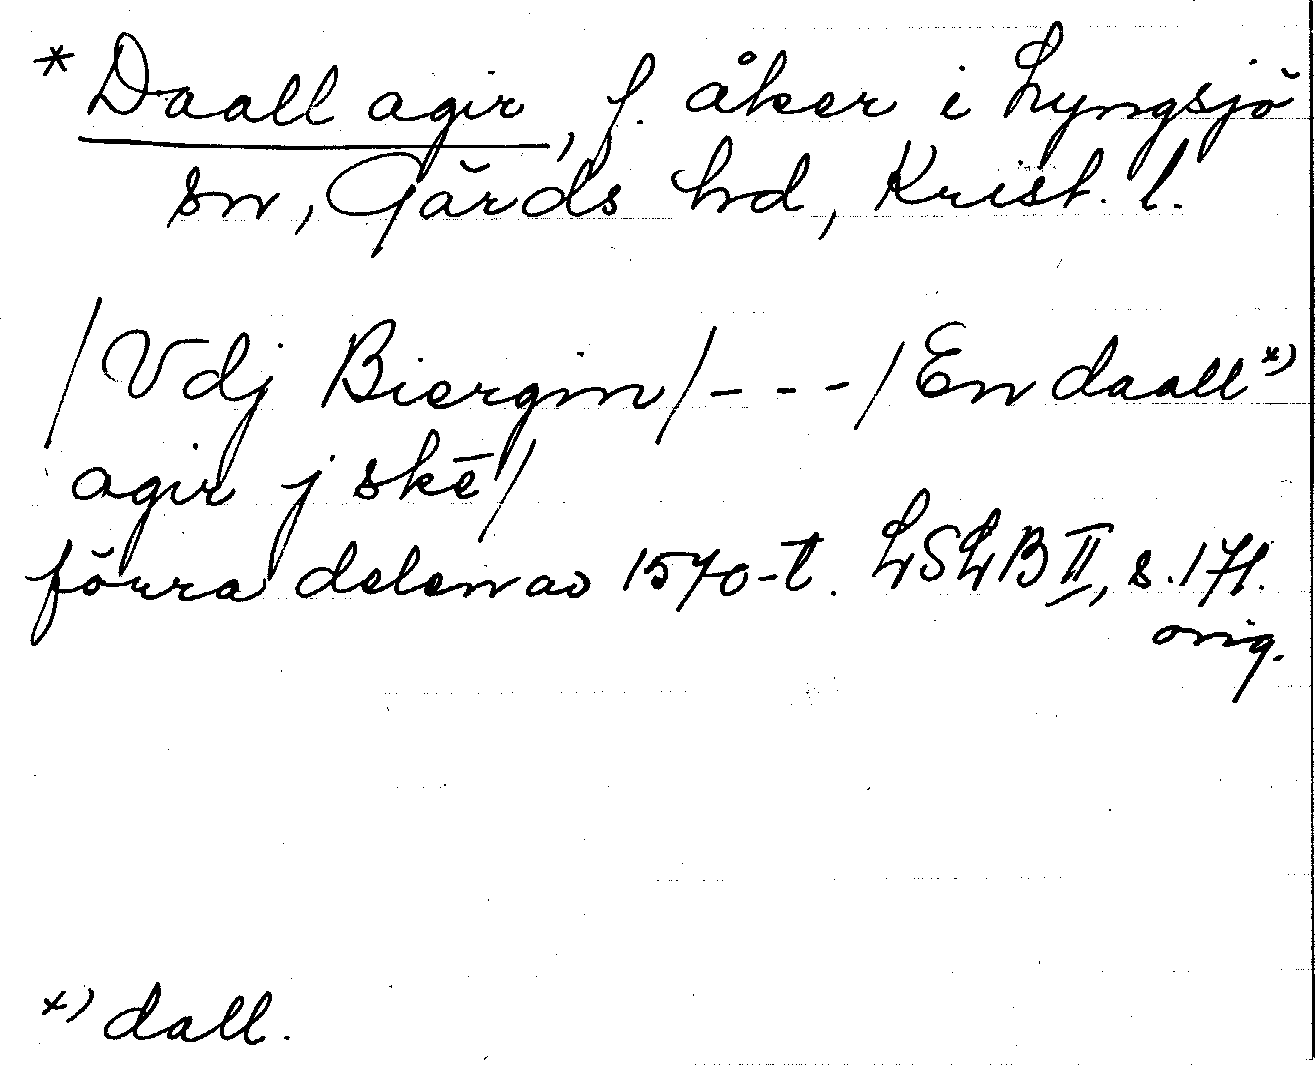 * Daall agir, f. åker i Lyngsjö
sn, Gärds hd, Krist. l.
/Vdj Biergin/ - - - /En daall*)
agir j skē/
förra delen av 1570-t. LSLB II, s. 171.
orig.
*) dall.